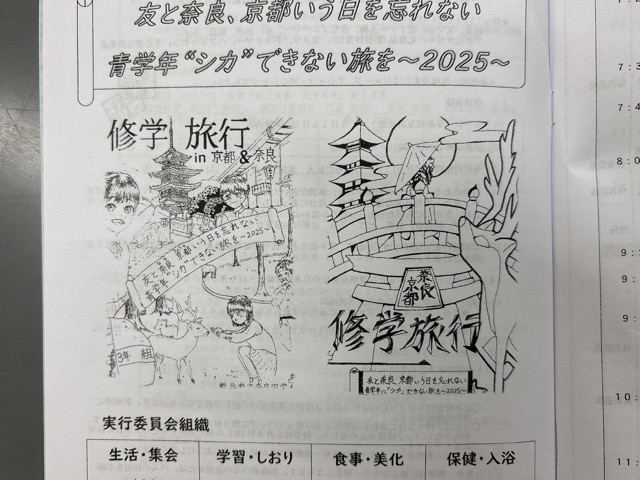 友と奈良、京都いう日を忘れない
青学年“シカ”できない旅を～2025～
修学旅行
in 京都&奈良
友と奈良、京都いう日を忘れない
青学年“シカ”できない旅を～2025～
3年 組
奈良
京都
修学旅行
友と奈良、京都いう日を忘れない
青学年“シカ”できない旅を～2025～
実行委員会組織
生活・集会 学習・しおり 食事・美化 保健・入浴
7:3
7:4
8:0
9:
9:
9
11: